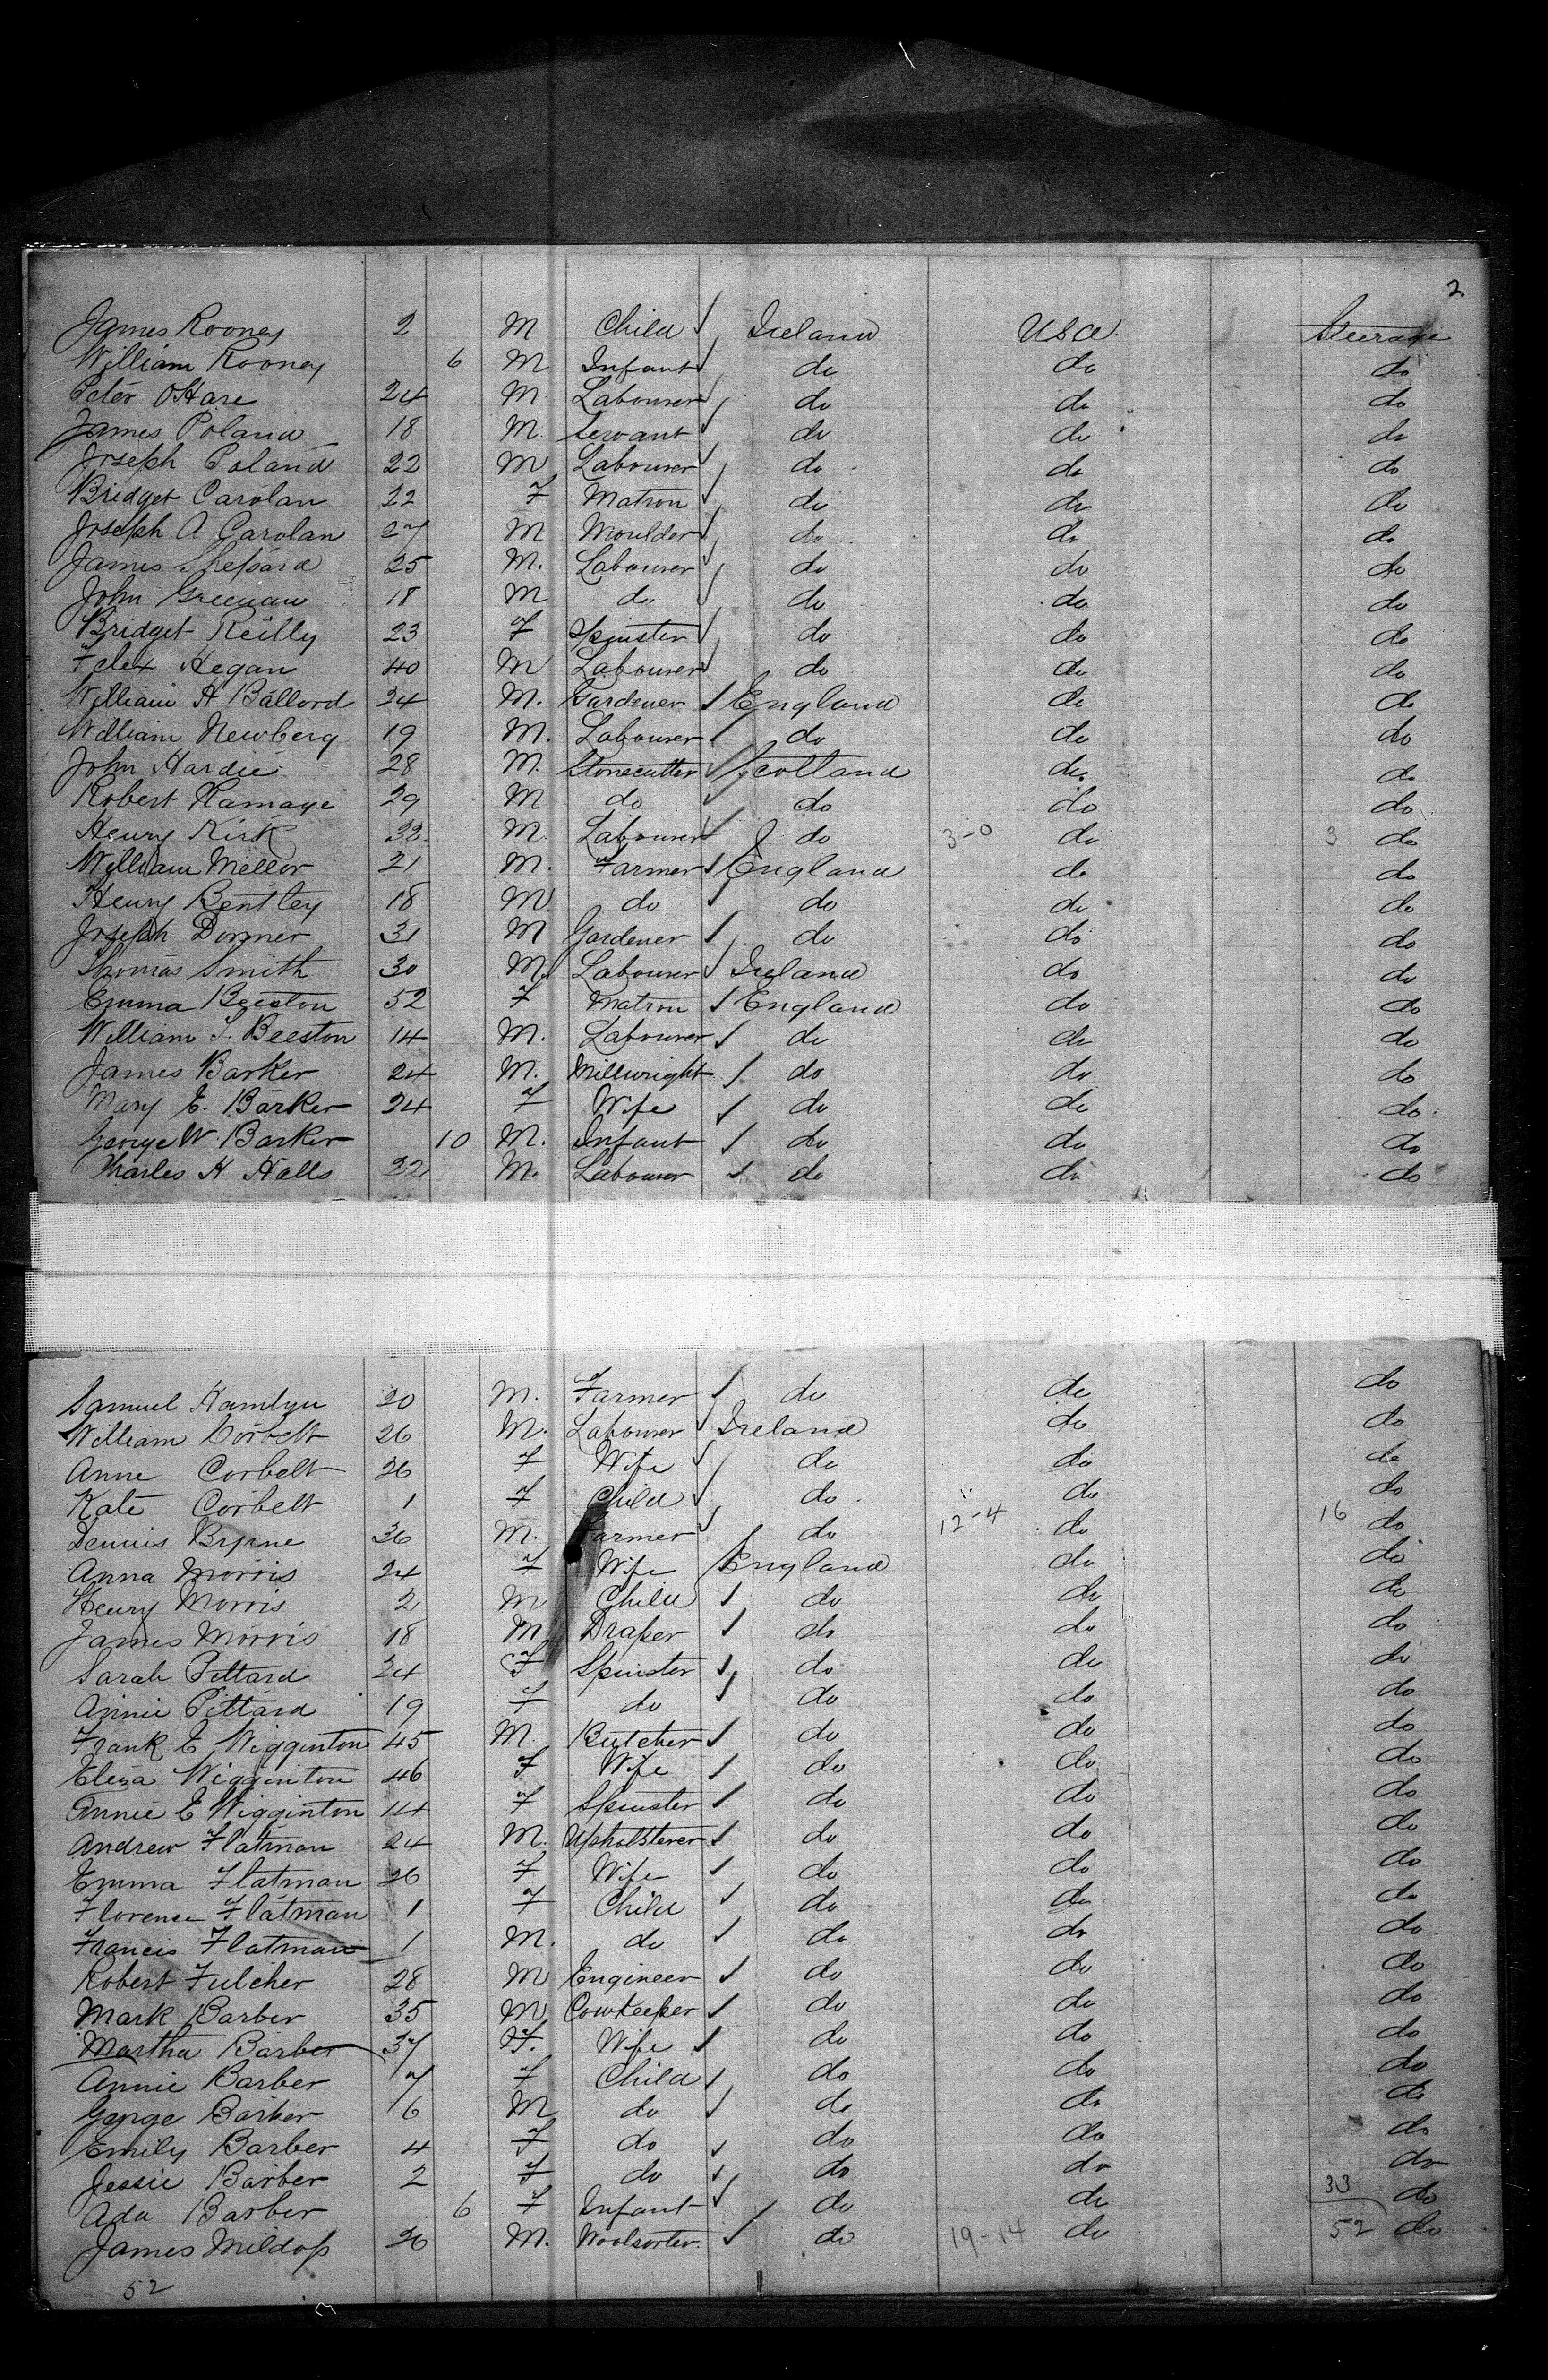 2
James Rooney 2 M Child Ireland USA Steerage
William Rooney 6 M Infant do do do
Peter OHare 24 M Labourer do do do
James Poland 18 M. Servant do do do
Joseph Poland 22 M Labourer do do do
Bridget Carolan 22 F Matron do do do
Joseph A Carolan 27 M Moulder do do do
James Shepard 25 M. Labourer do do do
John Greenan 18 M do do do do
Bridget Reilly 23 F Spinster do do do
Felex Hegan 40 M Labourer do do do
William H Ballord 24 M. Gardener England do do
William Newberg 19 M. Labourer do do do
John Hardie 28 M. Stonecutter Scotland do do
Robert Ramage 29 M do do do do
Henry Kirk M. Labourer do 3-0 do 3 do
William Mellor 21 M. Farmer England do do
Henry Bentley 18 M do do do do
Joseph Dormer 31 M Gardener do do do
Thomas Smith 30 M. Labourer Ireland do do
Emma Beeston 52 F Matron England do do
William S. Beeston 14 M. Labourer do do do
James Barker 24 M. Millwright do do do
Mary E. Barker 24 F Wife do do do
George W. Barker 10 M. Infant do do do
Charles H Halls 22 M. Labourer do do do
Samuel Hamlyn 20 M. Farmer do do do
William Corbett 26 M. Labourer Ireland do do
Anne Corbett 26 F Wife do do do
Kate Corbett 1 F Child do do do
Dennis Byrne 36 M. Farmer do 12-4 do 16 do
Anna Morris 24 F Wife England do do
Henry Morris 2 M Child do do do
James Morris 18 M Draper do do do
Sarah Pittard 24 F Spinster do do do
Annie Pittard 19 F do do do do
Frank E Wigginton 45 M. Butcher do do do
Eliza Wigginton 46 F Wife do do do
Annie E Wigginton 14 F Spinster do do do
Andrew Flatman 24 M. Upholsterer do do do
Emma Flatman 26 F Wife do do do
Florence Flatman 1 F Child do do do
Francis Flatman 1 M. do do do do
Robert Fulcher 28 M Engineer do do do
Mark Barber 35 M Cowkeeper do do do
Martha Barber 37 F. Wife do do do
Annie Barber 7 F Child do do do
George Barber 6 M do do do do
Emily Barber 4 F do do do do
Jessie Barber 2 F do do do do
Ada Barber 6 F Infant do do 33 do
James Mildop 26 M. Woolsorter do 19-14 do 52 do
52